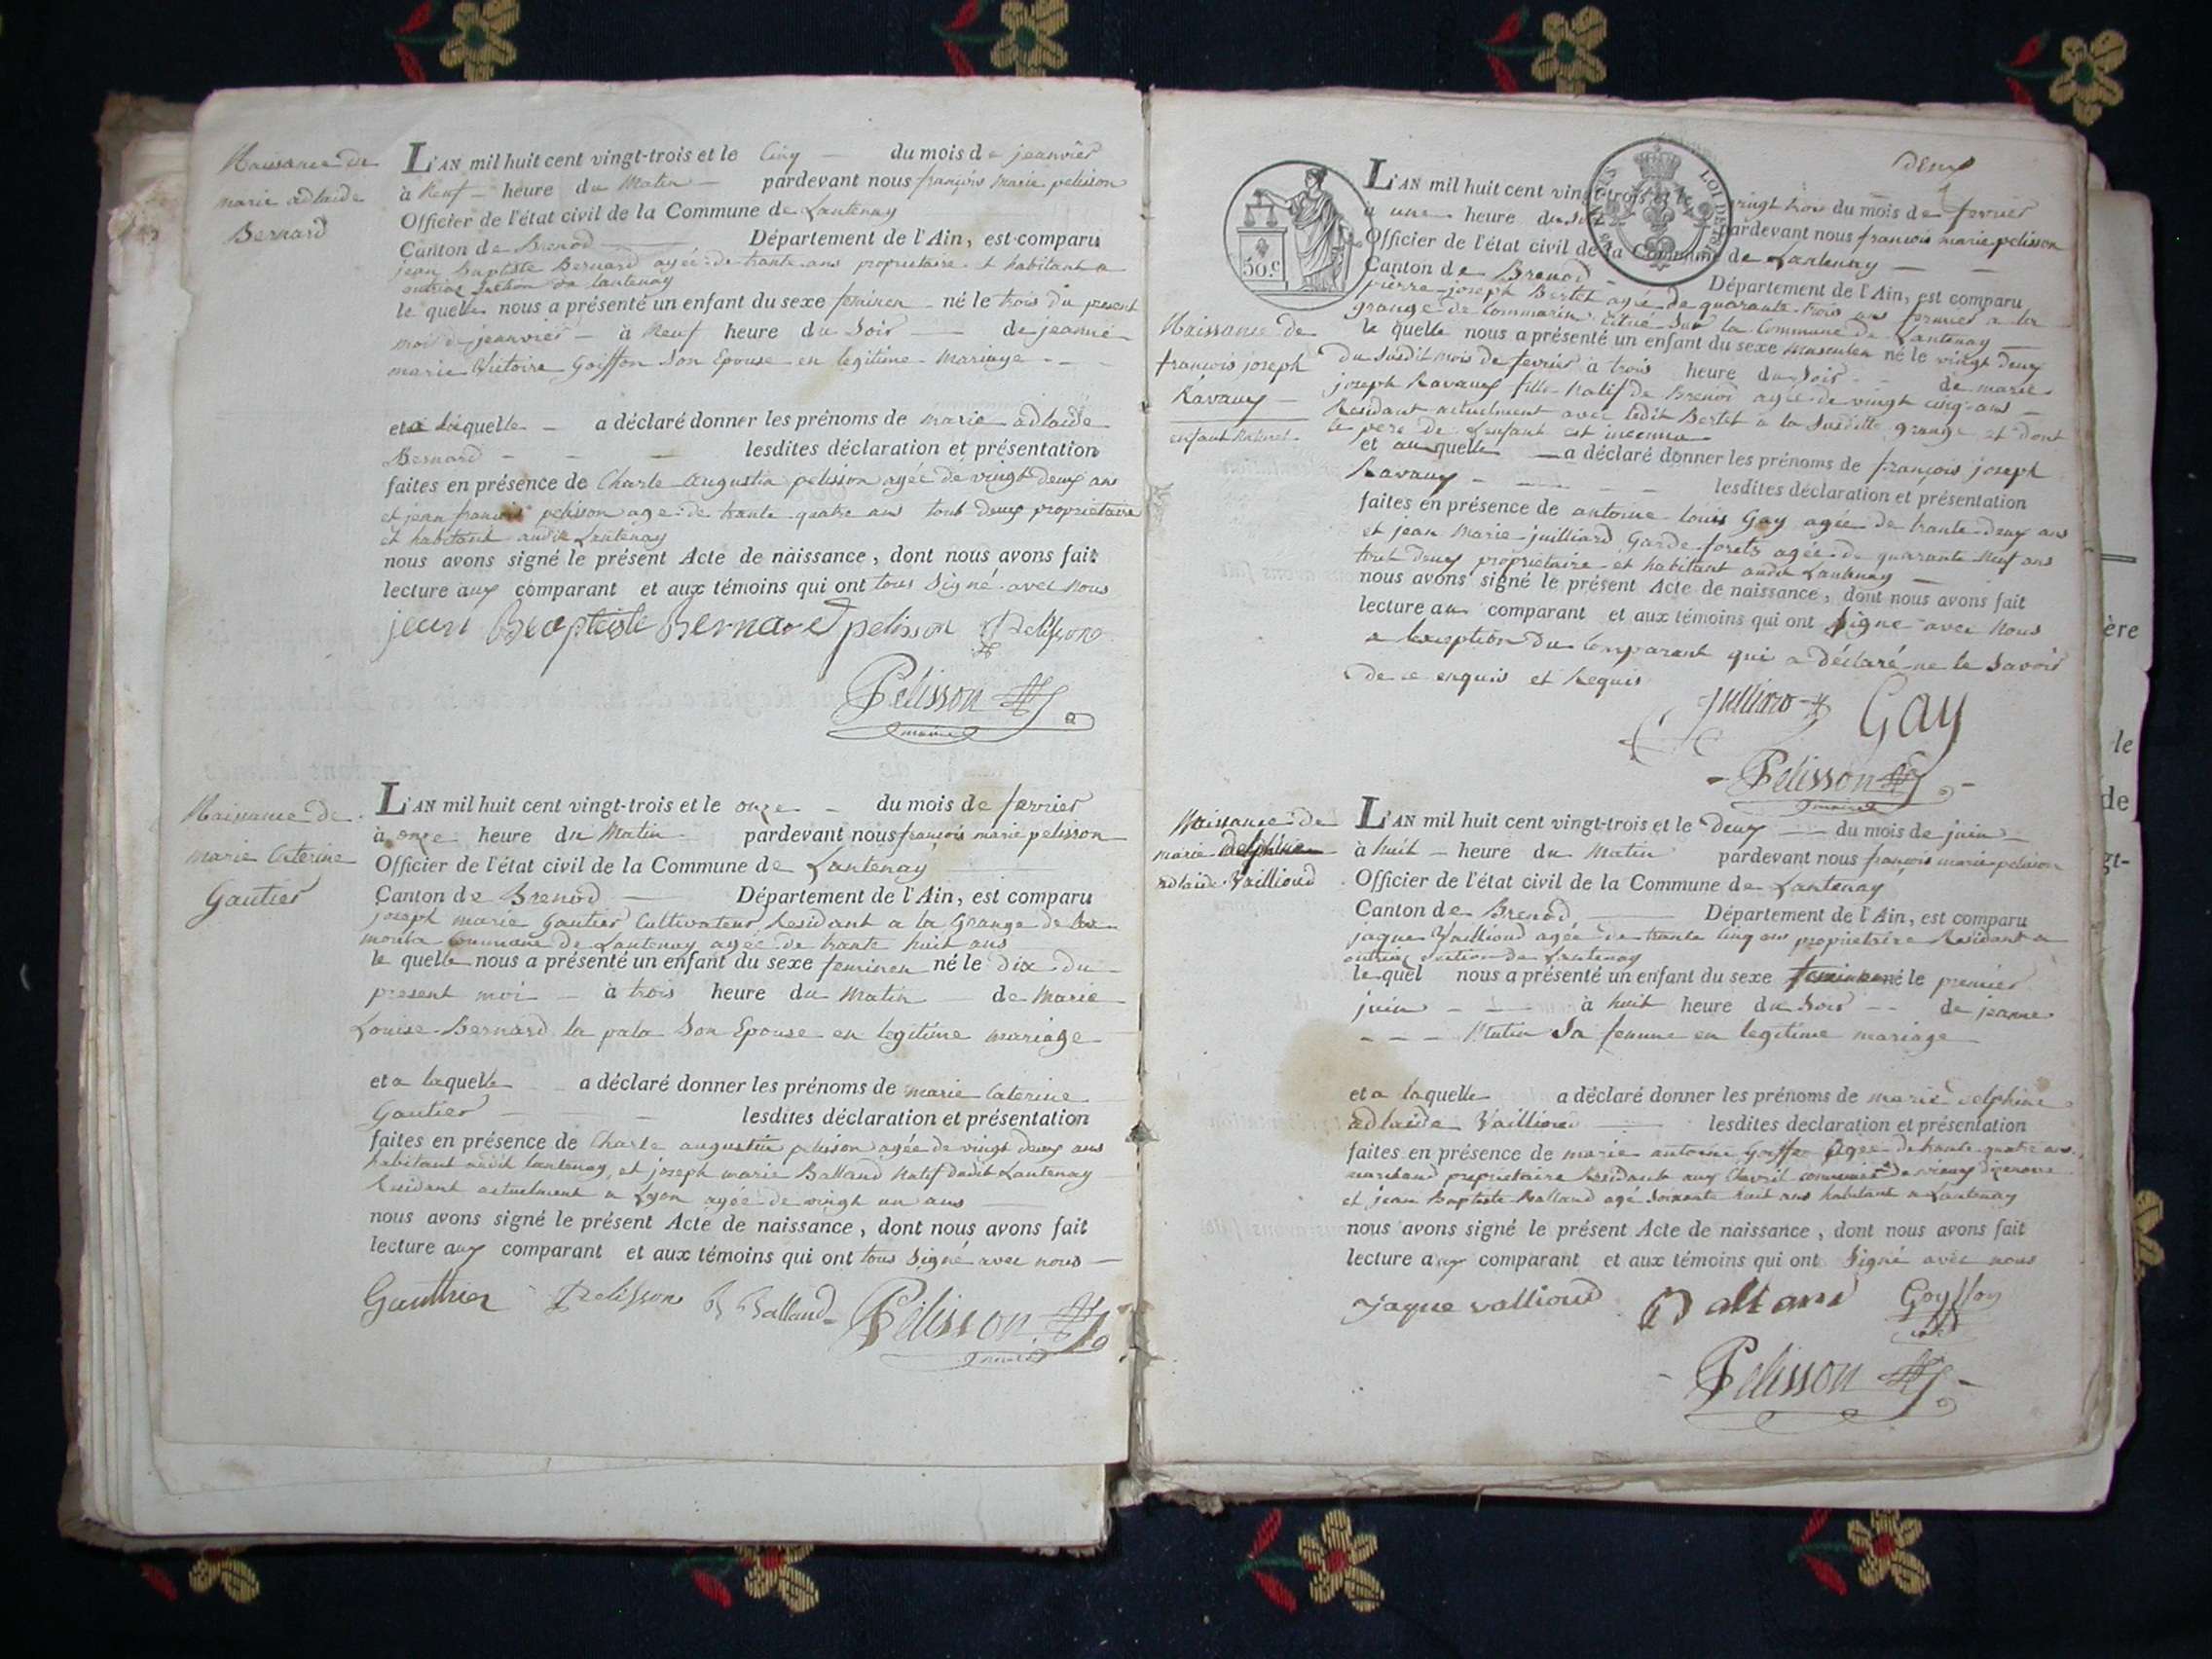 Naissance de
marie adlaide
Bernard
L'AN mil huit cent vingt-trois et le Cinq du mois de jeanvier
à Neuf heure du Matin pardevant nous françois marie pelisson
Officier de l'état civil de la Commune de Lantenay
Canton de Brenod Département de l'Ain, est comparu
jean Baptiste Bernard agée de trante ans proprietaire et habitant a
outriaz section de lantenay
le quelle nous a présenté un enfant du sexe feminen né le trois du present
mois de jeanvier à Neuf heure du Soir de jeanne
marie Victoire Goiffon Son Epouse en legitime mariage
et a laquelle a déclaré donner les prénoms de marie adlaide
Bernard lesdites déclaration et présentation
faites en présence de Charle augustin pelisson agée de vingt deux ans
et jean francois pelisson age de trante quatre ans tout deux proprietaire
et habitant audit Lantenay
nous avons signé le présent Acte de naissance, dont nous avons fait
lecture aux comparant et aux témoins qui ont tous Signé avec Nous
jean Baptiste Bernard pelisson Pelisson
Pelisson
maire
Naissance de
marie Caterine
Gautier
L'AN mil huit cent vingt-trois et le onze du mois de fevrier
à onze heure du Matin pardevant nous françois marie pelisson
Officier de l'état civil de la Commune de Lantenay
Canton de Brenod Département de l'Ain, est comparu
joseph marie Gautier Cultivateur Residant a la Grange de
Commune de Lantenay agée de trante huit ans
le quelle nous a présenté un enfant du sexe feminen né le Dix du
present moi à trois heure du Matin de Marie
Louise Bernard la pala Son Epouse en legitime mariage
et a laquelle a déclaré donner les prénoms de marie Caterine
Gautier lesdites déclaration et présentation
faites en présence de Charle augustin pelisson agée de vingt deux ans
habitant audit lantenay, et joseph marie Balland Natif dudit Lantenay
Residant actuelment a Lyon agée de vingt un ans
nous avons signé le présent Acte de naissance, dont nous avons fait
lecture aux comparant et aux témoins qui ont tous Signé avec nous
Gauthier Pelisson Balland Pelisson
maire
deux
50 c
LOI DE 1816
Naissance de
françois joseph
Ravaux
enfant Naturel
L'AN mil huit cent vingt-trois et le vingt trois du mois de fevrier
à une heure du Soir pardevant nous francois marie pelisson
Officier de l'état civil de la Commune de Lantenay
Canton de Brenod Département de l'Ain, est comparu
pierre joseph Bertet agé de quarante trois ans fermier a la
grange de Commarin Situé Sur la Commune de Lantenay
le quelle nous a présenté un enfant du sexe masculen né le vingt deux
du Susdit mois de fevrier à trois heure du Soir de marie
joseph Ravaux fille Natif de Brenod agée de vingt cinq ans
Residant actuelment avec ledit Bertet a la Susditte grange et dont
le pere de Lenfant est inconnu
et auquelle a déclaré donner les prénoms de françois joseph
Ravaux lesdites déclaration et présentation
faites en présence de antoine Louis Gay agée de trante deux ans
et jean Marie juilliard Garde forets agée de quarante Neuf ans
tout deux proprietaire et habitant audit Lantenay
nous avons signé le présent Acte de naissance, dont nous avons fait
lecture au comparant et aux témoins qui ont Signé avec Nous
a lexception du Comparant qui a déclaré ne le Savoir
De ce enquis et Requis
Gay
Pelisson
maire
Naissance de
marie delphine
adlaide Vaillioud
L'AN mil huit cent vingt-trois et le Deux du mois de juin
à huit heure du Matin pardevant nous françois marie pelisson
Officier de l'état civil de la Commune de Lantenay
Canton de Brenod Département de l'Ain, est comparu
jaque Vaillioud agée de trante cinq ans proprietaire Residant a
outriaz Section de Lantenay
le quel nous a présenté un enfant du sexe feminen né le premier
juin à huit heure du Soir de jeanne
Mutin Sa femme en legitime mariage
et a laquelle a déclaré donner les prénoms de marie delphine
adlaide Vaillioud lesdites declaration et présentation
faites en présence de marie antoine Goiffon agée de trante quatre ans
marchand proprietaire Residant aux commune de vieux dizenave
et jean Baptiste Balland agé Soixante huit ans habitant a Lantenay
nous avons signé le présent Acte de naissance, dont nous avons fait
lecture aux comparant et aux témoins qui ont Signé avec nous
jaque vallioud Balland Goyffon
Pelisson
ère
le
de
gt-